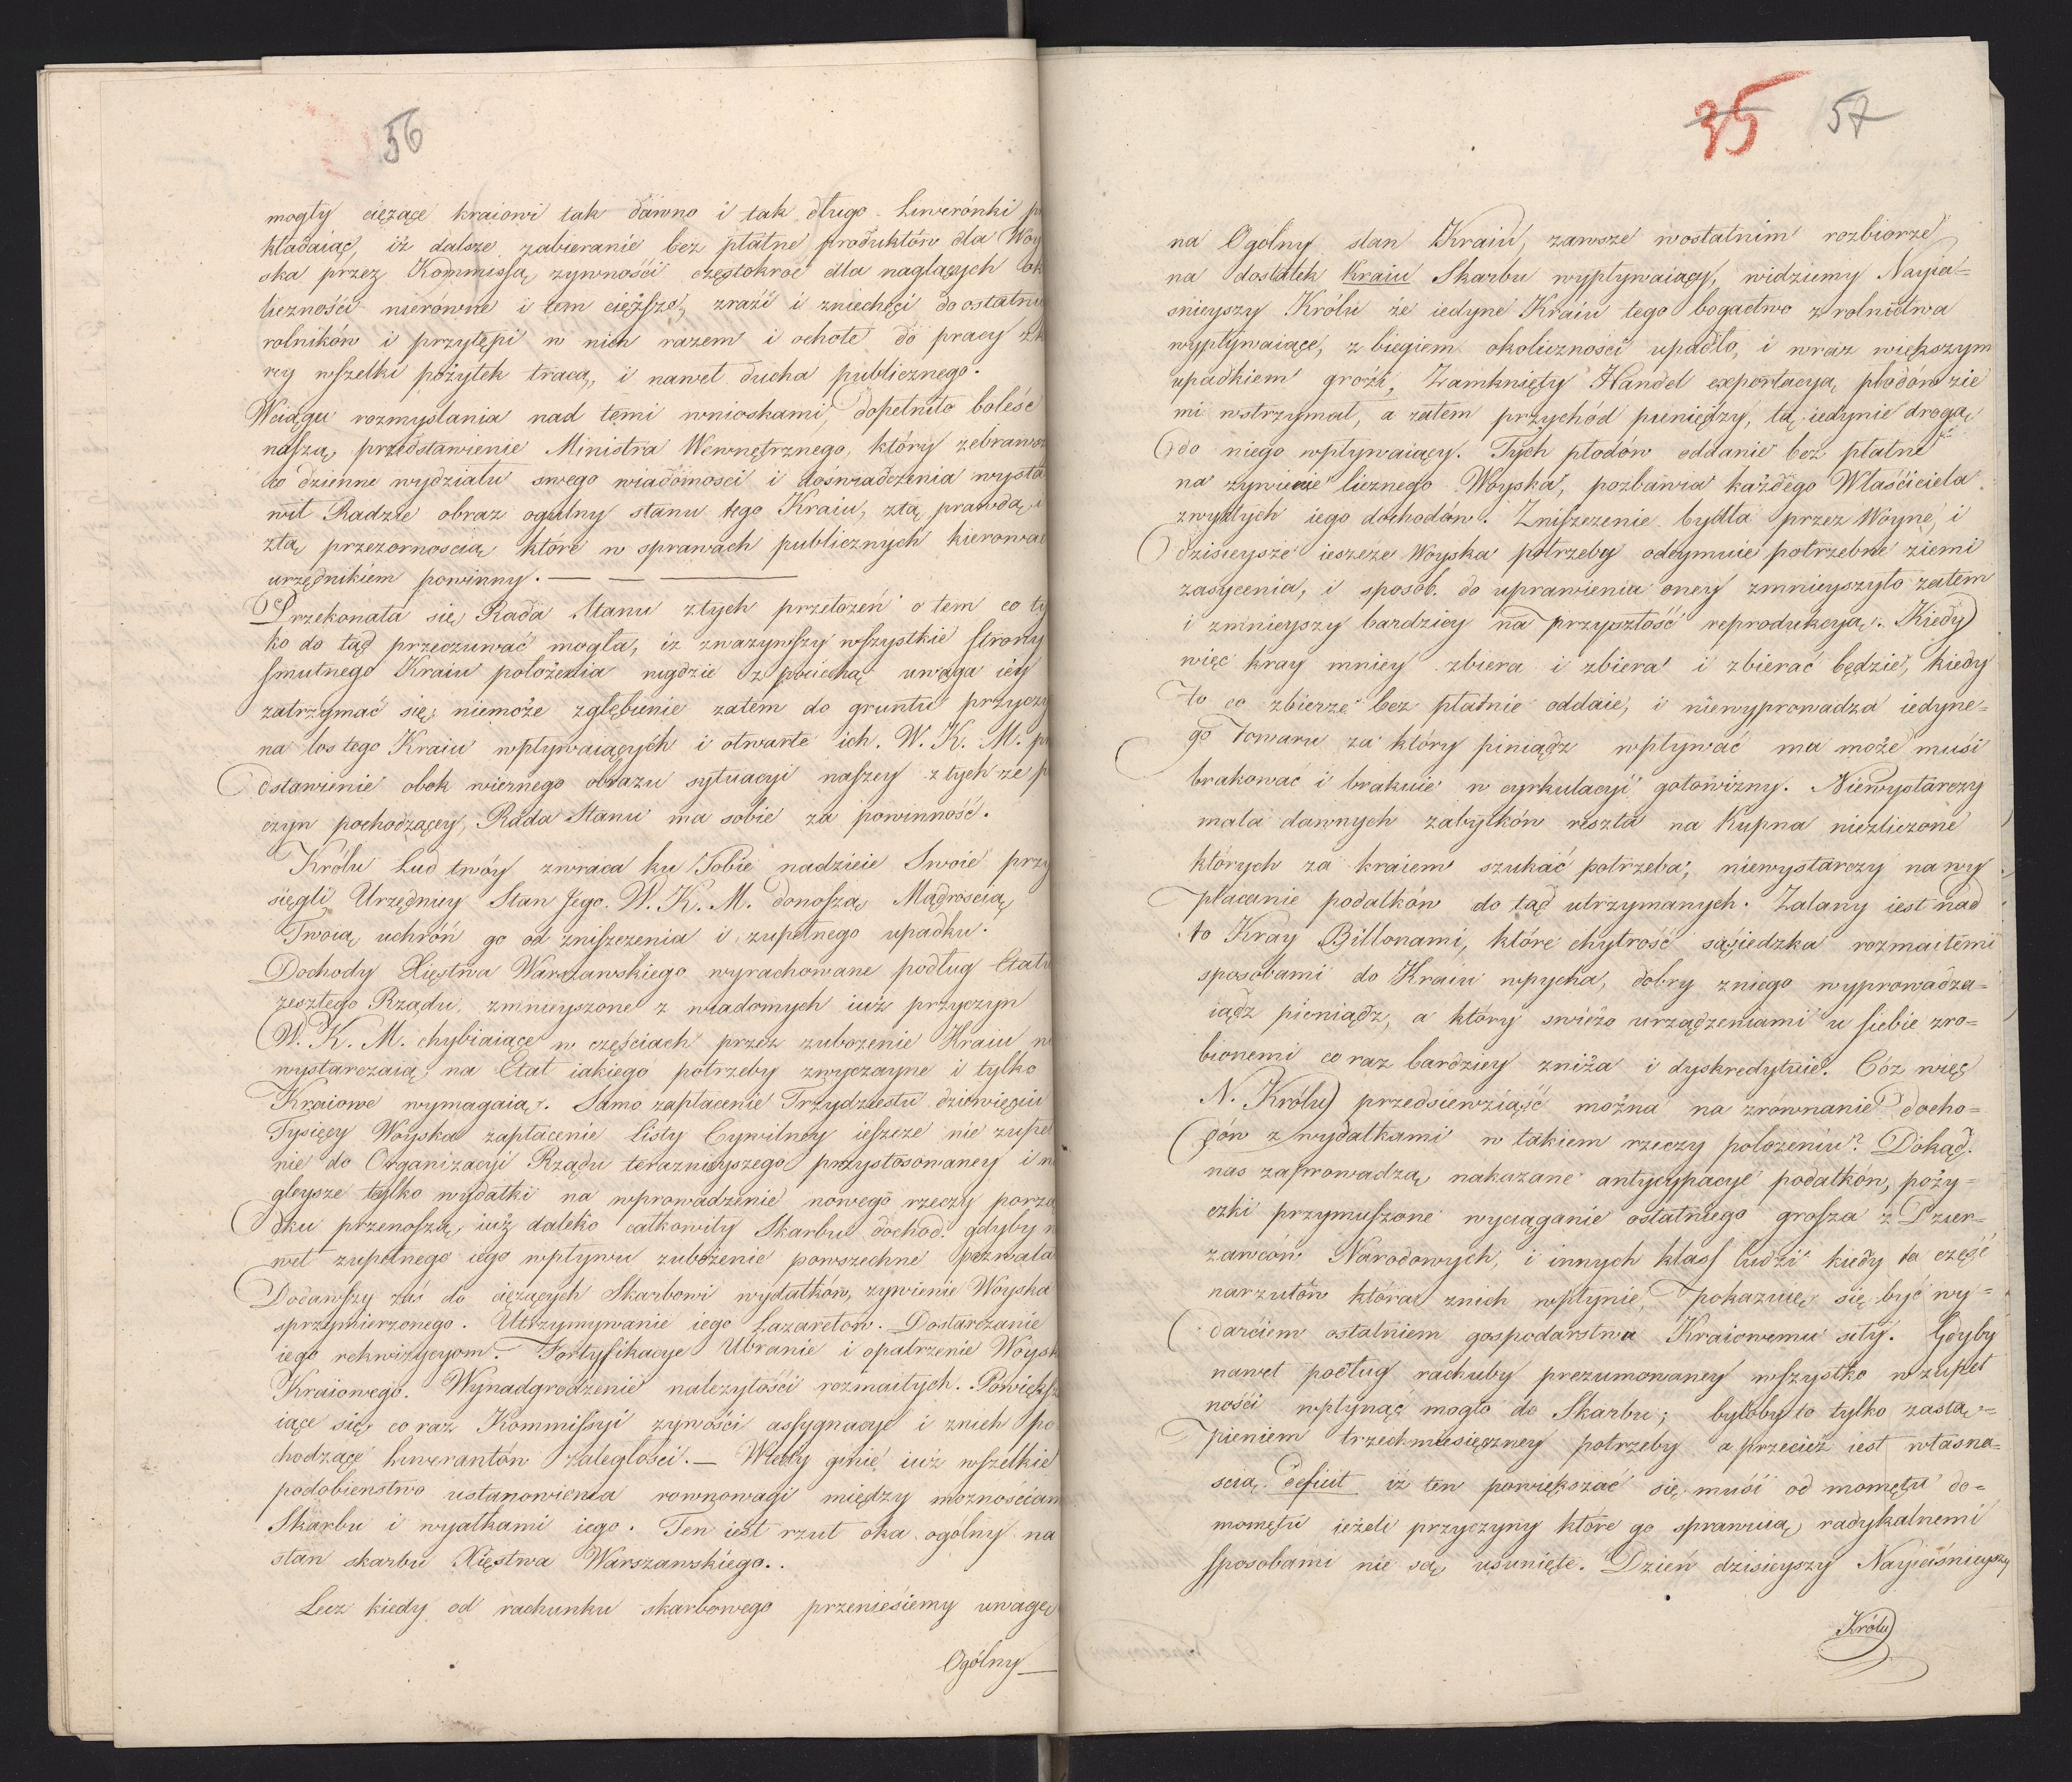 56
mogły ciężące kraiowi tak dawno i tak długo Liwerónki
kładaiąc, iż dalsze zabieranie bez płatne produktów dla Woy
ska przez Kommissją żywnośći częstokroć dla naglących ok
licznośći nierówne i tem cięższe, zraźi i zniechęci do ostatni
rolników i przytępi w nich razem i ochotę do pracy
rey wszelki pożytek tracą, i nawet ducha publicznego.
Wciągu rozmyslania nad temi wnioskami, dopełniło boleść
naszą, przedstawienie Ministra Wewnętrznego, który zebrawsz
co dzienne wydziału swego wiadomosci i doswiadczenia wysta
wił Radzie obraz ogulny stanu tego Kraiu, ztą prawdą i
ztą przezornoscią które w sprawach publicznych kierować
urzędnikiem powinny. — — —
Przekonała się Rada Stanu ztych przełożeń o tem co ty
ko do tąd przeczuwać mogła, iz zwazywszy wszystkie strony
smutnego Kraiu położenia nigdzie z pociechą uwaga iey
zatrzymać się niemoże zgłębienie zatem do gruntu przyczy
na los tego Kraiu wpływaiących i otwarte ich. W. K. M. p
dstawienie obok wiernego obrazu sytuacyi naszey z tych ze p
czyn pochodzącey, Rada Stanu ma sobie za powinność.
Królu Lud twóy zwraca ku Tobie nadzieie Swoie przy
sięgli Urzędnicy Stan Jego. W. K. M. donoszą Mądroscią
Twoią uchróń go od zniszczenia i zupełnego upadku.
Dochody Xięstwa Warszawskiego wyrachowane podług Etatu
zeszłego Rządu, zmnieyszone z wiadomych iuż przyczyn
W. K. M. chybiaiące w częściach przez zubożenie Kraiu n
wystarczaią na Etat iakiego potrzeby zwyczayne i tylko
Kraiowe wymagaią. Samo zapłacenie Trzydziestu dziewięciu
Tysięcy Woyska zapłacenie listy Cywilney ieszcze nie zupeł
nie do Organizacyi Rządu teraznieyszego przystosowaney i n
gleysze tylko wydatki na wprowadzenie nowego rzeczy porzą
dku przenoszą iuż daleko całkowity Skarbu dochod. gdyby n
wet zupełnego iego wpływu zubożenie powszechne pozwala
Dodawszy zaś do ciężących Skarbowi wydatków, żywienie Woyska
sprzymierzonego. Utrzymywanie iego Lazaretow. Dostarczanie
iego rekwizycyom. Fortyfikacye Ubranie i opatrzenie Woysk
Kraiowego. Wynadgrodzenie należytości rozmaitych. Powięksa
iące się co raz Kommissyi zywości assygnacye i znich po
chodzące Liwerantów zaległości. — Wtedy ginie iuż wszelkie
podobienstwo ustanowienia rownowagi między moznościam
Skarbu i wyatkami iego. Ten iest rzut oka ogólny na
stan skarbu Xięstwa Warszawskiego..
Lecz kiedy od rachunku skarbowego przeniesiemy uwagę
Ogólny—
35 57
na Ogólny stan Kraiu, zawsze wostatnim rozbiorze
na dostatek Kraiu Skarbu wypływaiący, widziemy Nayia=
snieyszy Królu że iedyne Kraiu tego bogactwo zrolnictwa
wypływaiące, zbiegiem okoliczności upadło, i wraz większym
upadkiem groźi, Zamknięty Handel exportacyą płodów zie
mi wstrzymał, a zatem przychód pieniędzy, tą iedynie drogą
do niego wpływaiący. Tych płodów oddanie bez płatne
na żywienie licznego Woyska, pozbawia każdego Właściciela
zwykłych iego dochodów. Zniszczenie bydła przez Woynę, i
dzisieysze ieszcze Woyska potrzeby odeymuie potrzebne ziemi
zasycenia, i sposób do uprawienia oney zmnieyszyło zatem
i zmnieyszy bardziey na przyszłość reprodukcyą. Kiedy
więc kray mniey zbiera i zbiera i zbierać będzie, kiedy
to co zbierze bez płatnie oddaie, i niewyprowadza iedyne=
go Towaru za który piniądz wpływać ma może muśi
brakować i brakuie w cyrkulacyi gotowizny. Niewystarczy
mała dawnych zabytków reszta na Kupna niezliczone
których za kraiem szukać potrzeba, niewystarczy na wy
płacanie podatków do tąd utrzymanych. Zalany iest nad
to Kray Billonami, które chytrość sąsiedzka rozmaitemi
sposobami do Kraiu wpycha, dobry zniego wyprowadza=
iądz pieniądz, a który swieżo urządzeniami u siebie zro=
bionemi co raz bardziey zniża i dyskredytuie. Cóz więc
N. Królu przedsiewziąść można na zrównanie docho=
dów z wydatkami w takiem rzeczy położeniu? Dokąd.
nas zaprowadzą nakazane antycypacye podatków, poży=
czki przymuszone wyciąganie ostatniego grosza z Dzier=
żawców Narodowych, i innych klass ludzi kiedy ta część
narzutów która znich wpłynie, pokazuie się być wy=
darciem ostatniem gospodarstwa Kraiowemu siły. Gdyby
nawet podług rachuby prezumowaney wszystko wzupeł
nośći wpłynąć mogło do Skarbu; byłoby to tylko zastą=
pieniem trzechmiesięczney potrzeby a przecież iest własno=
scią deficit iż ten powiększać się muśi od momętu do=
momętu ieżeli przyczyny które go sprawuią radykalnemi
sposobami nie są usunięte. Dzień dzisieyszy Nayiaśnieyszy
Królu